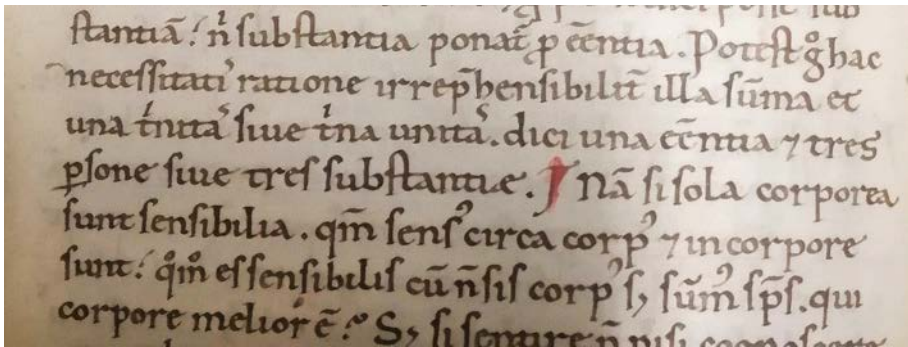 stantiā. n̄ substantia ponat̄ ꝓ eēntia. Potest gͦ hac
necessitati᷒ ratione irrep̄hensibilit̄ illa sūma et
una tͥnitaˢ siue tͥna unitaˢ. dici una eēntia ⁊ tres
ꝑsone siue tres substantie. Nā si sola corporea
sunt sensibilia. qm̄ sensꝰ circa corpꝰ ⁊ in corpore
sunt. qͦmͦ es sensibilis cū n̄ sis corpꝰ sꝫ sūmꝰ sp̄s. qui
corpore melior ē. Sꝫ si sentire n̄ nisi